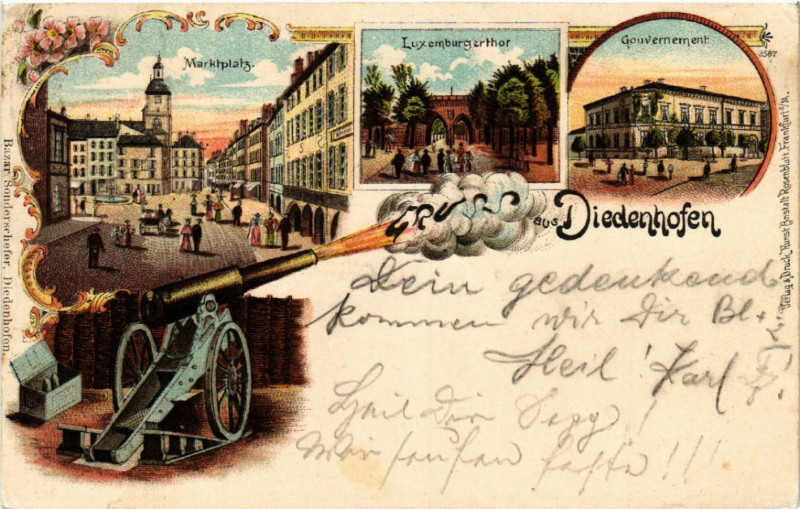 Marktplatz.
Luxemburgerthor
Gouvernement
3587
GRUSS
aus Diedenhofen
Bazar Sonderschefer, Diedenhofen.
Verlag & Druck Kunst Anstalt Rosenblatt, Frankfurt a/M.
Dein gedenkend
kommen wir Dir Bl.
Heil! Karl
Heil Dir Sepp!
Wir saufen feste!!!